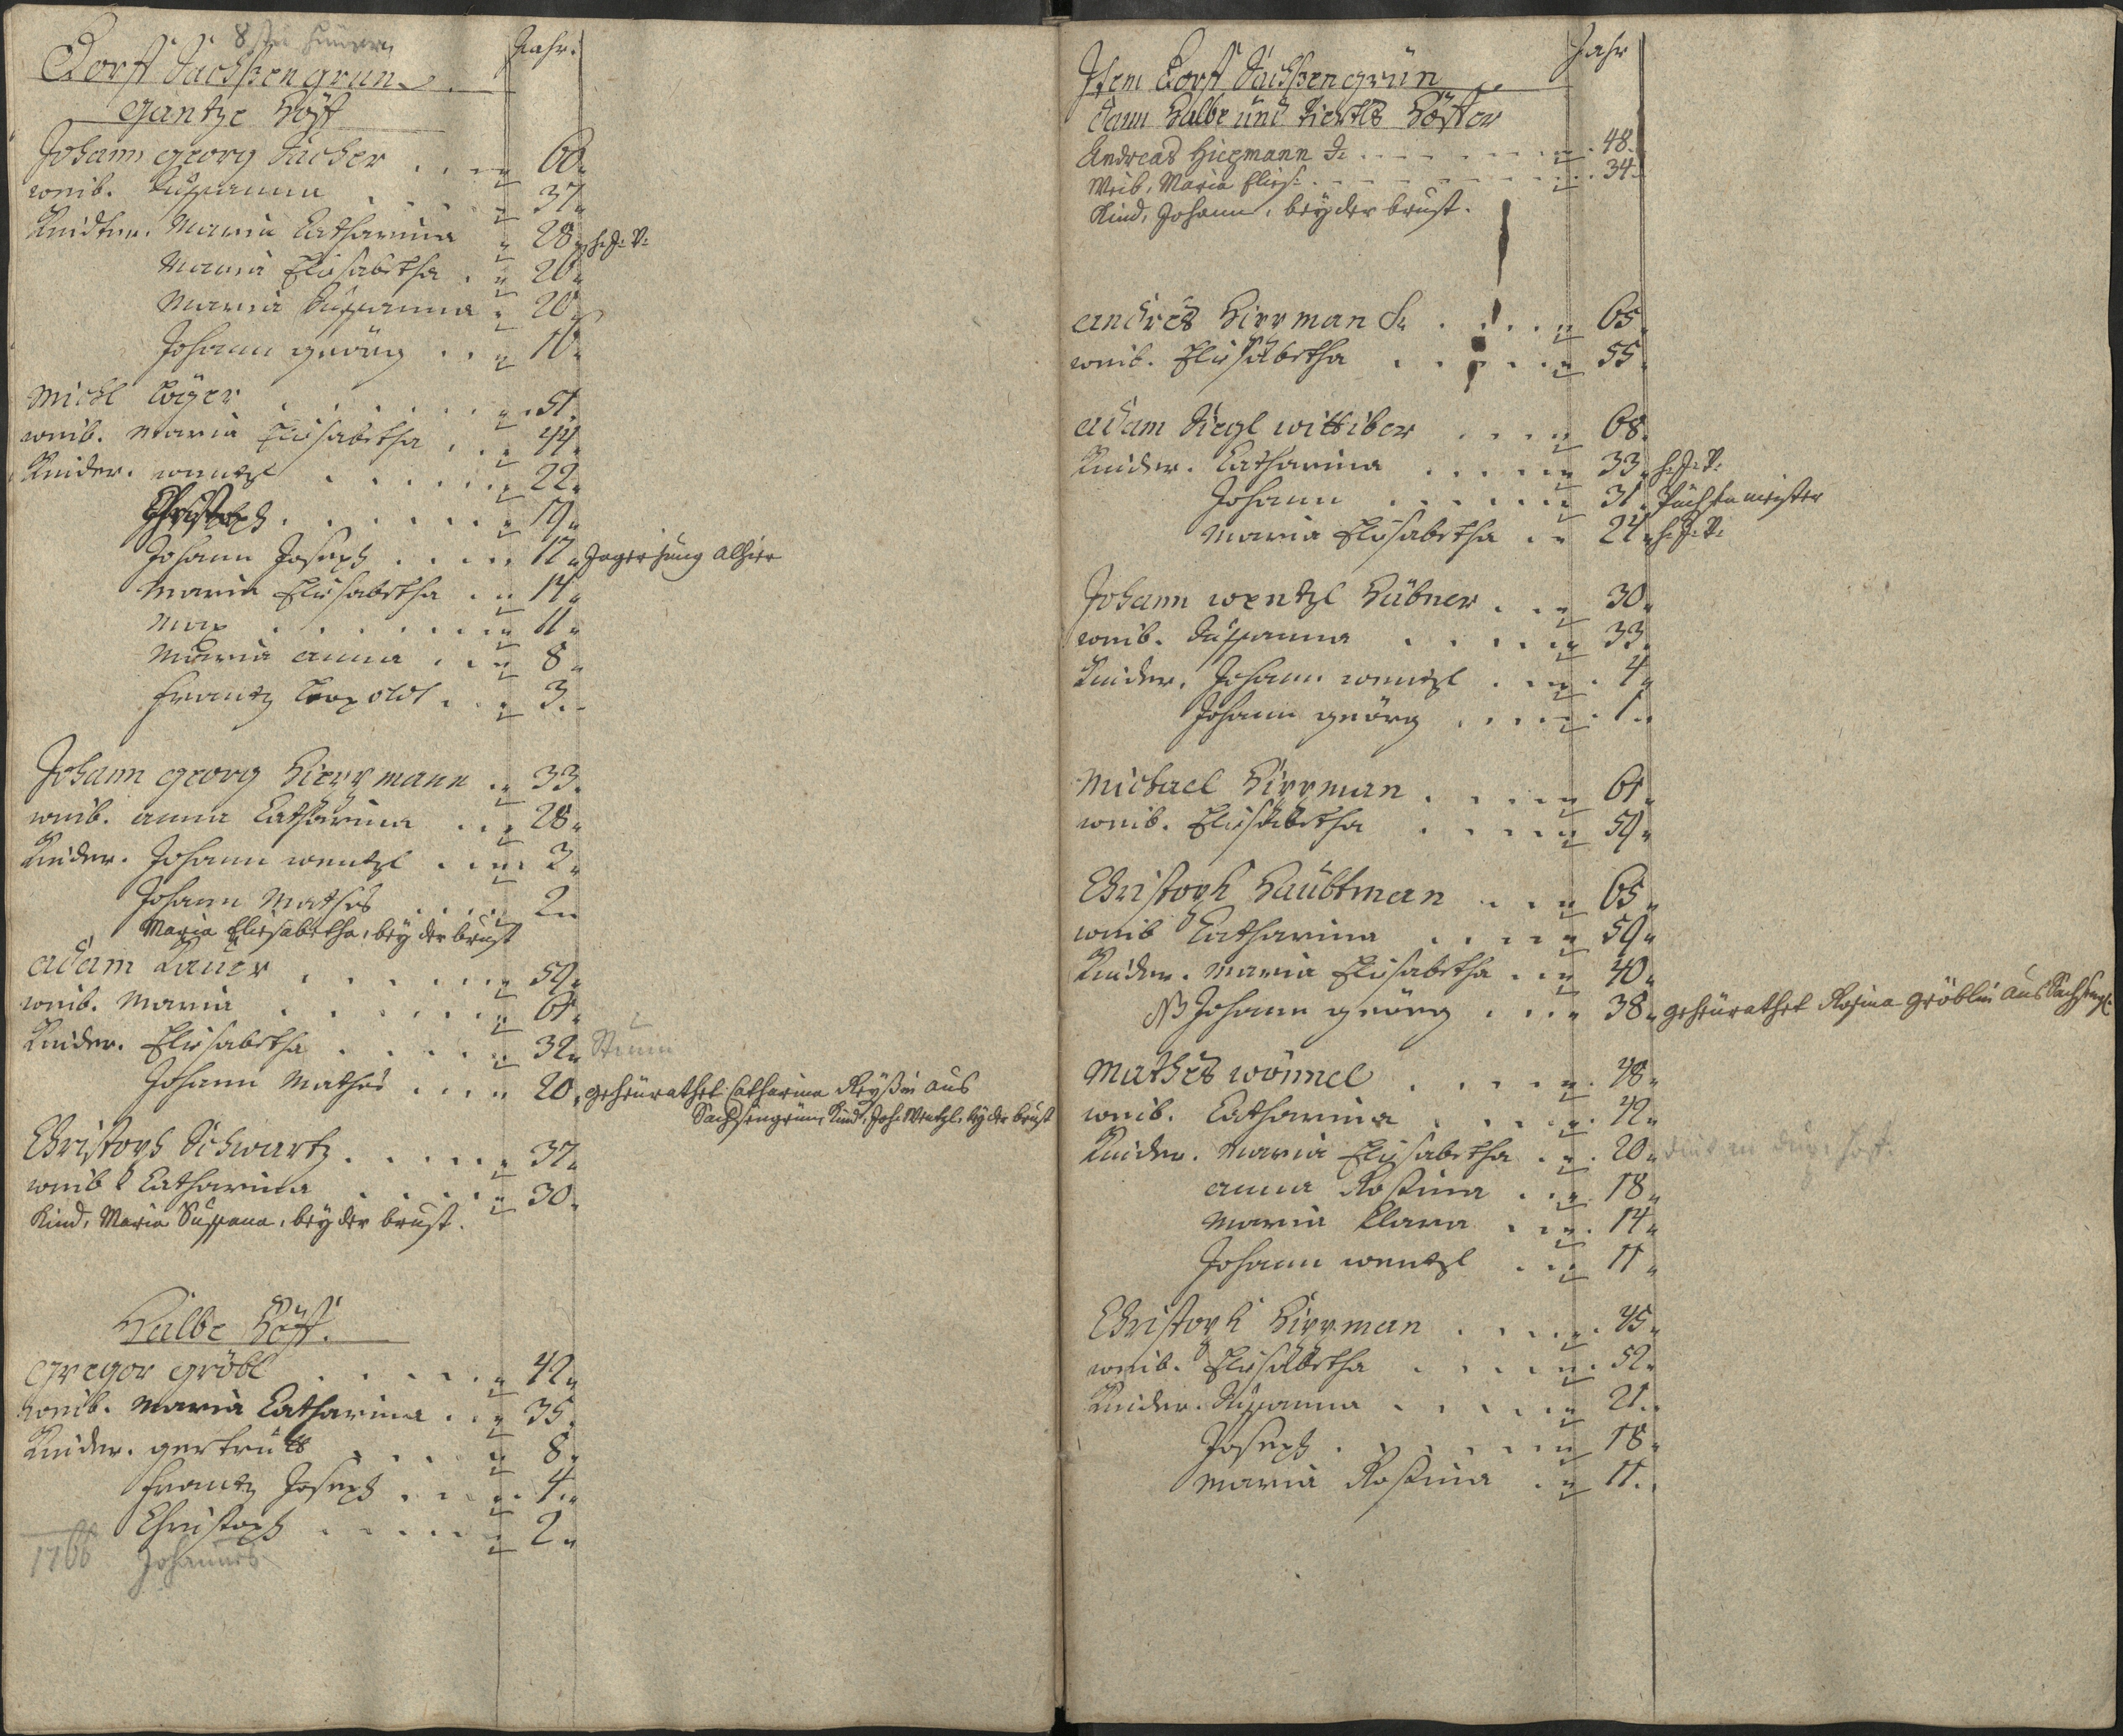 Dorff Sachßengrun Jahr.
Gantze Höff
Johann Georg Sacher 60
weib. Susanna 37
Kindter. Maria Catharina 28 h: J: V:
Maria Elisabetha 20
Maria Susanna 20
Johann geörg 10
Michl 51
weib. Maria Elisabetha 44
Kinder. wentzl 22
Christoph 19
Johann Joseph 17 Jager Jung alhier
Maria Elisabetha 14
Max 11
Maria anna 8
Frantz Leopoldt 3
Johann Georg Hierrmann 33
weib. anna Catharina 28
Kinder. Johann wentzl 3
Johann Mathes 2
Maria Eliesabetha, bey der brust
adam Lauer 59
weib. Maria 61
Kinder. Elisabetha 32 Stum
Johann Mathes 20 geheürathet Catharina Reyßin aus
Sachsengrün, Kind, Joh: Wentzl, bey der brust
Christoph Schwartz 37
weib Catharina 30
Kind, Maria Susana, bey der brust.
Halbe Höff.
Gregor gröbl 42
weib. Maria Catharina 35
Kinder. gertrudt 8
Frantz Joseph 4
Christoph 2
1766 Johannes
Jahr
Item Dorff Sachßengrün
dann Halbe und Viertls Höffer
Andreas Hiermann J: 48
Weib, Maria Elies: 34
Kind, Johann, bey der brust.
andres Hirrman S: 65
weib. Elisabetha 55
adam Siegl wittiber 68
Kinder. Catharina 33 h: J: V:
Johann 31
Maria Elisabetha 24 h: J: V:
Johann wentzl Hübner 30
weib. Susanna 33
Kinder. Johann wentzl 4
Johann geörg 1
Michael Hirrman 61
weib. Elisabetha 59
Christoph Haubtman 65
weib Catharina 59
Kinder. Maria Elisabetha 40
NB Johann geörg 38 geheürathet Rosina gröblin aus Sachseng:
Mathes wönnel 48
weib. Catharina 42
Kinder. Maria Elisabetha 20
anna Rosina 18
Maria Clara 14
Johann wentzl 11
Christoph Hirrman 45
weib. Elisabetha 52
Kinder. Susanna 21
Joseph 18
Maria Rosina 11